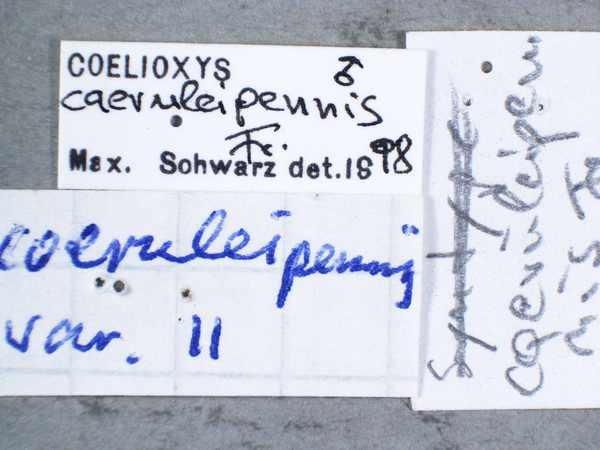 COELIOXYS ♂
caeruleipennis
Fr.
Max. Schwarz det.19 98
coeruleipennis
var. 11
Syntype
caeruleipen